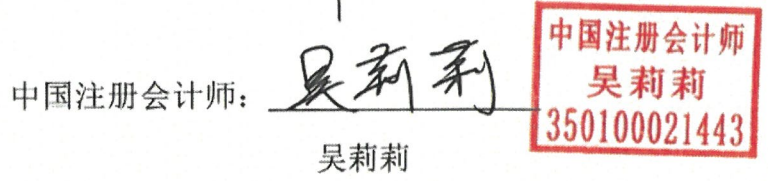 中国注册会计师：吴莉莉
吴莉莉
中国注册会计师
吴莉莉
350100021443